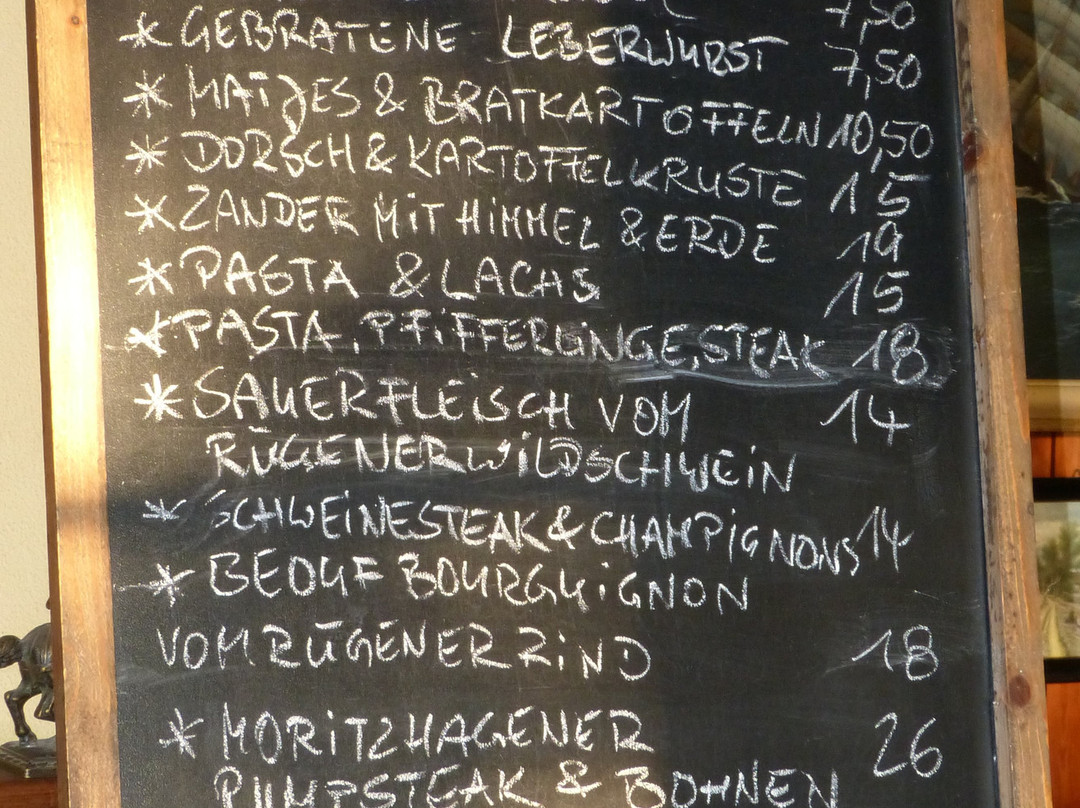 7,50
* GEBRATENE LEBERWURST 7,50
* MATJES & BRATKARTOFFELN 10,50
* DORSCH & KARTOFFELKRUSTE 15
* ZANDER MIT HIMMEL & ERDE 19
* PASTA & LACHS 15
* PASTA, PFIFFERLINGE, STEAK 18
* SAUERFLEISCH VOM 14
RÜGENERWILDSCHWEIN
* SCHWEINESTEAK & CHAMPIGNONS 14
* BEOUF BOURGUIGNON
VOM RÜGENER RIND 18
* MORITZHAGENER 26
RUMPSTEAK & BOHNEN